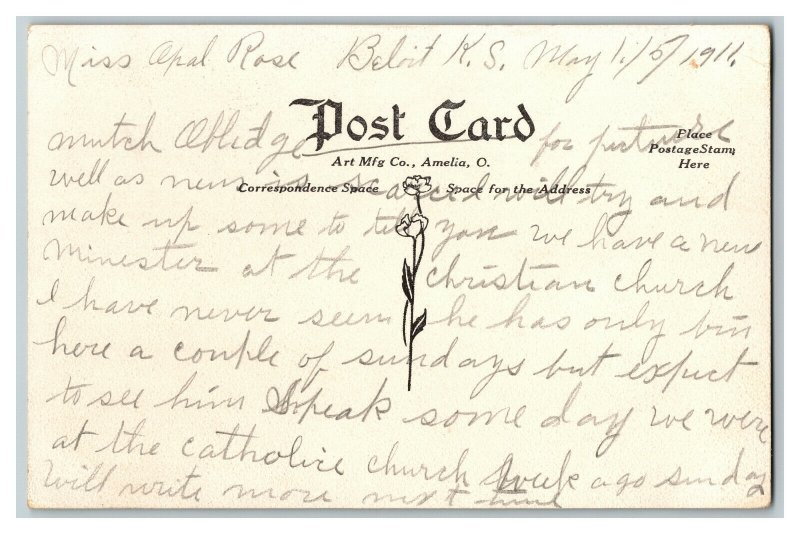 Miss Opal Rose Beloit K.S. May 1./5/1911.
Post Card
mutch Oblidge for picture
Place
Postage Stamp
Here
Art Mfg Co., Amelia, O.
well as news is scarce I will try and
Correspondence Space Space for the Address
make up some to tell you we have a new
Minester at the christian church
I have never seem he has only bin
here a couple of sundays but expect
to see him Speak some day we were
at the catholice church week ago sunday
Will write more next time